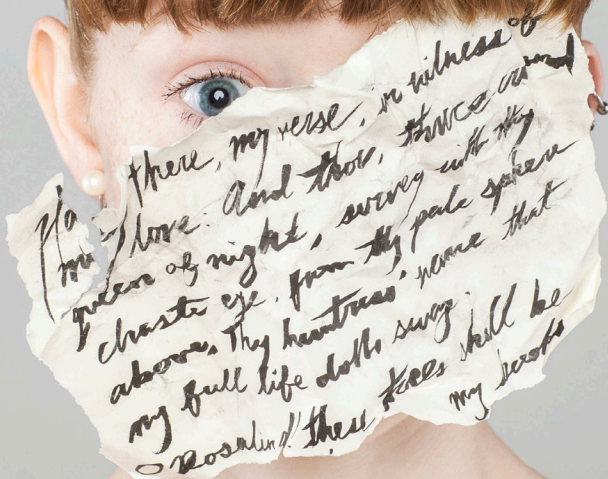 Ha there, my verse, in witness of
my love. And thou, thrice crownd
queen of night, survey with thy
chaste eye, from thy pale sphere
above, Thy huntress' name that
my full life doth sway.
O Rosalind! these trees shall be
my books